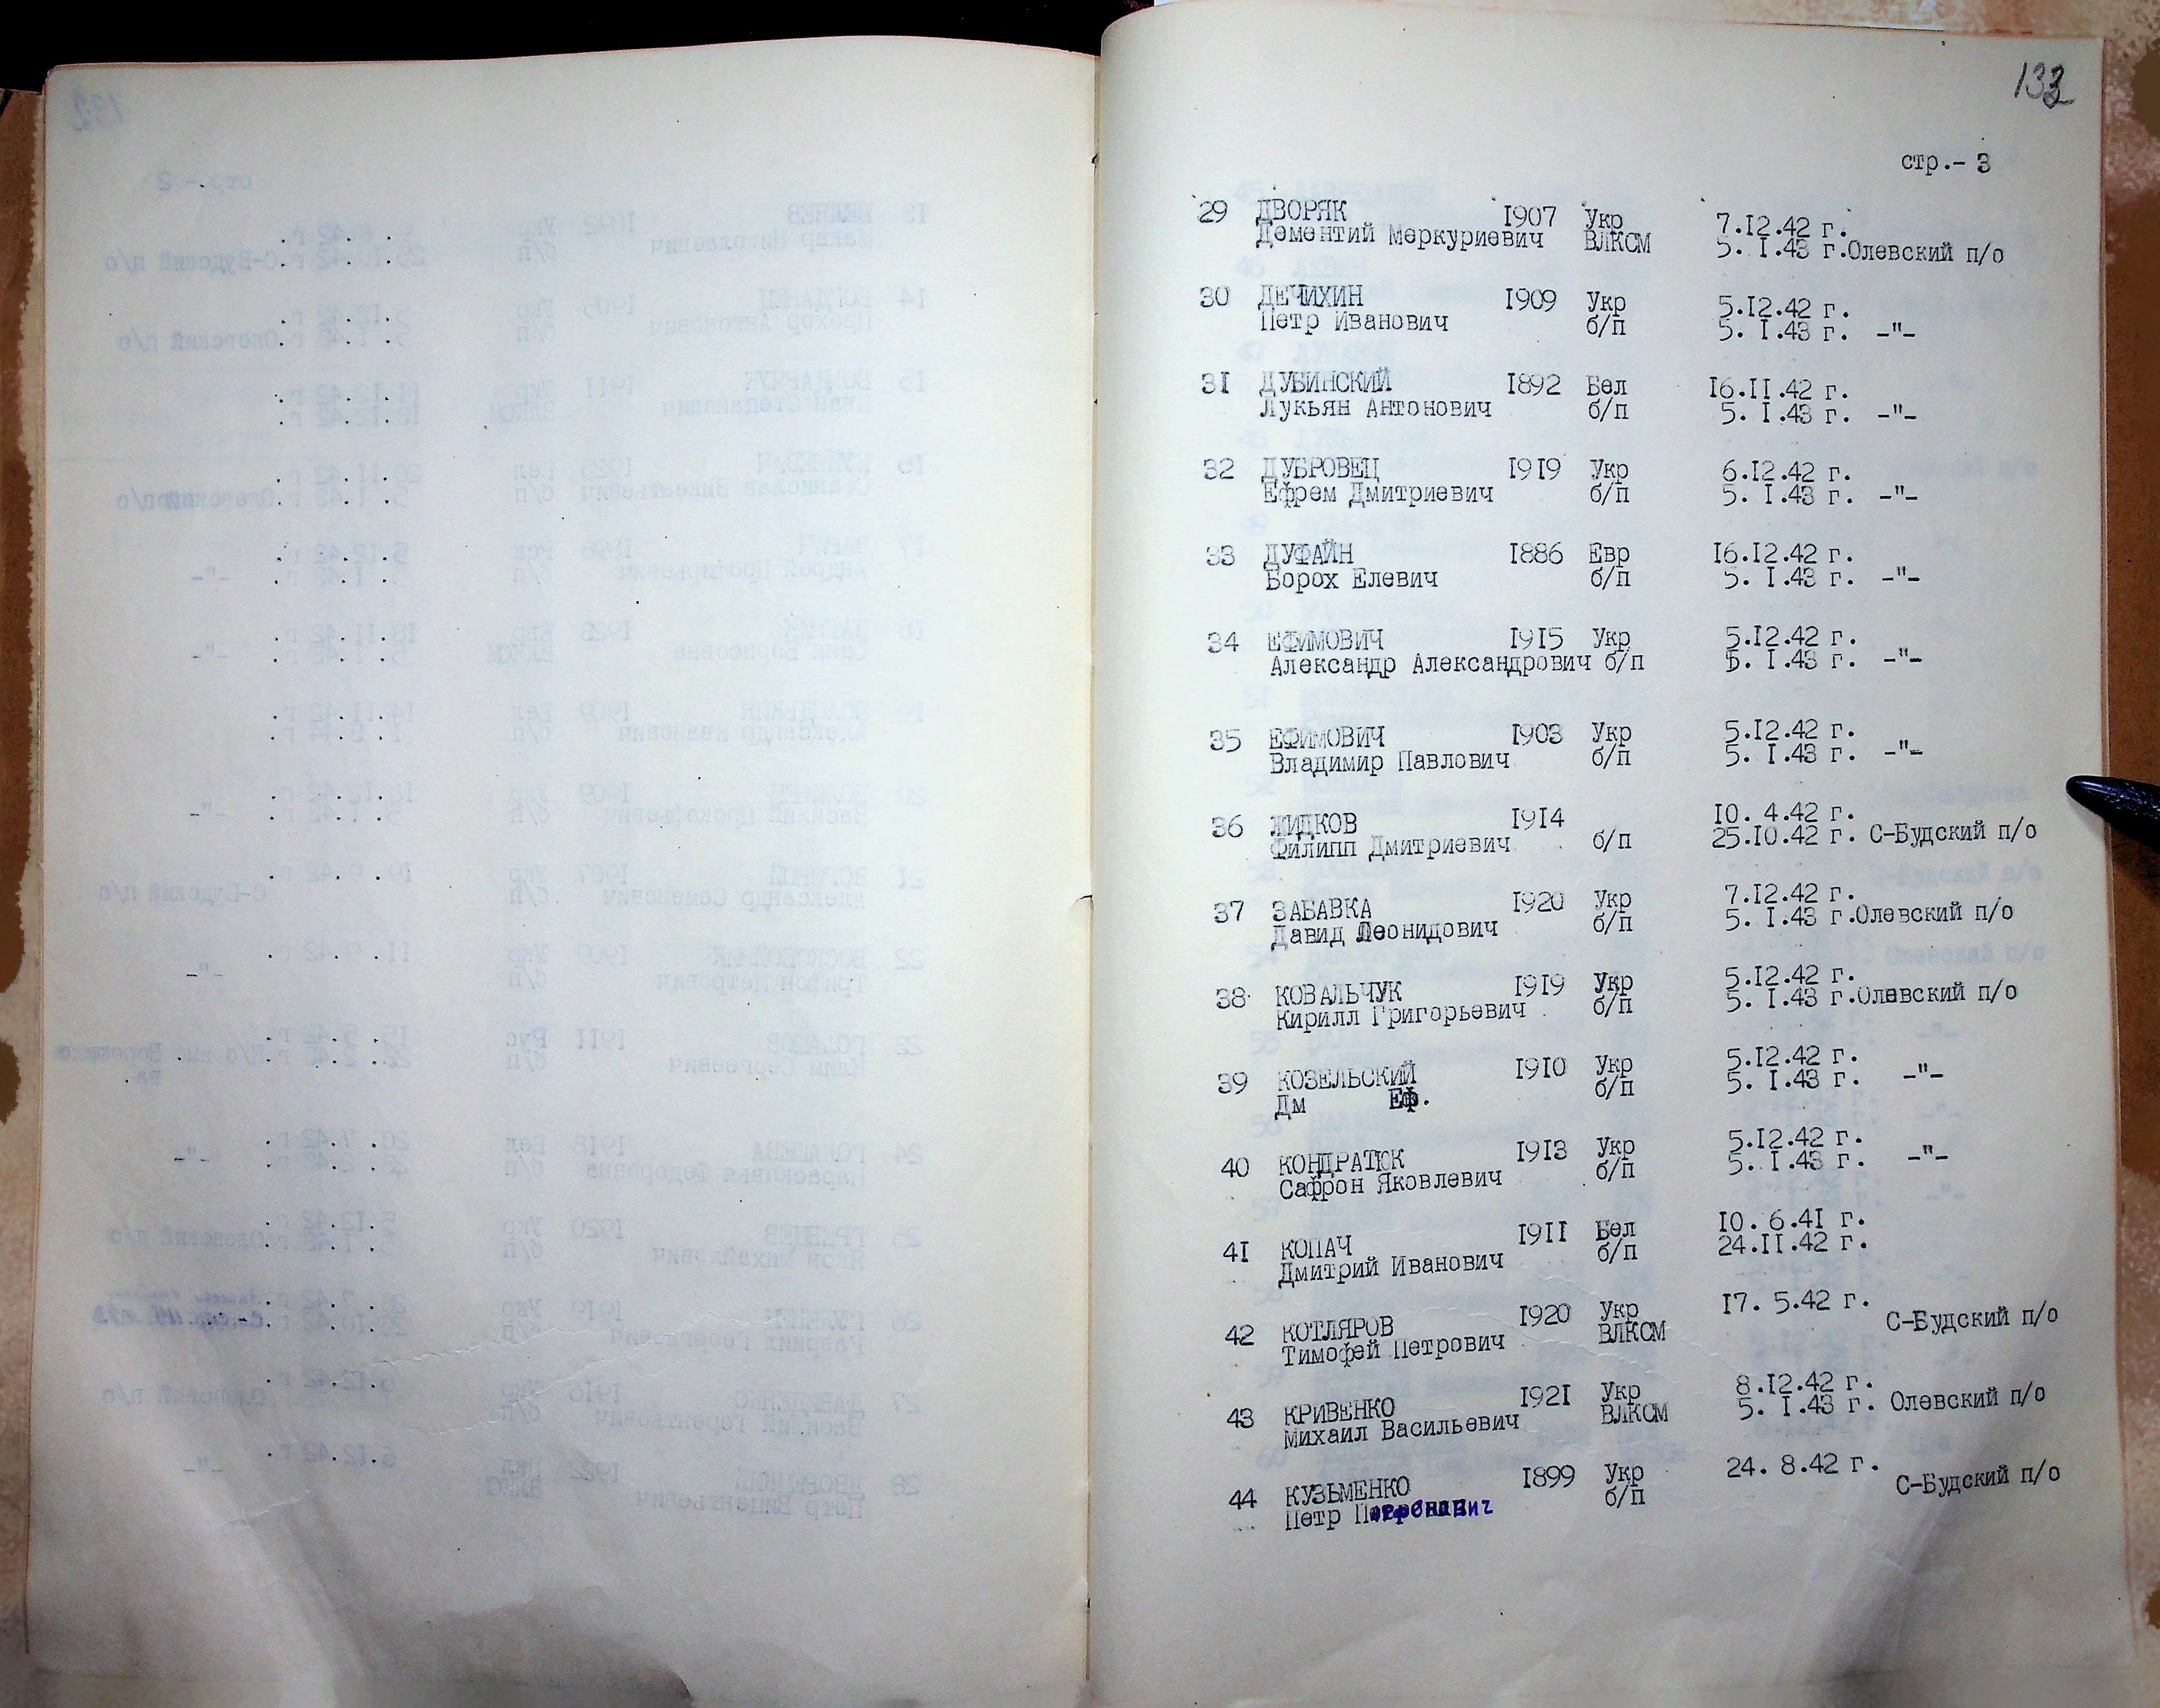 133
стр.- 3
29 ДВОРЯК 1907 Укр 7.12.42 г.
Дементий Меркуриевич ВЛКСМ 5. 1.43 г.Олевский п/о
30 ДЕЧИХИН 1909 Укр 5.12.42 г.
Петр Иванович б/п 5. 1.43 г. -"-
31 ДУБИНСКИЙ 1892 Бел 16.11.42 г.
Лукьян Антонович б/п 5. 1.43 г. -"-
32 ДУБРОВЕЦ 1919 Укр 6.12.42 г.
Ефрем Дмитриевич б/п 5. 1.43 г. -"-
33 ДУФАЙН 1886 Евр 16.12.42 г.
Борох Елевич б/п 5. 1.43 г. -"-
34 ЕФИМОВИЧ 1915 Укр 5.12.42 г.
Александр Александрович б/п 5. 1.43 г. -"-
35 ЕФИМОВИЧ 1903 Укр 5.12.42 г.
Владимир Павлович б/п 5. 1.43 г. -"-
36 ЖИДКОВ 1914 10. 4.42 г.
Филипп Дмитриевич б/п 25.10.42 г. С-Будский п/о
37 ЗАБАВКА 1920 Укр 7.12.42 г.
Давид Леонидович б/п 5. 1.43 г.Олевский п/о
38 КОВАЛЬЧУК 1919 Укр 5.12.42 г.
Кирилл Григорьевич б/п 5. 1.43 г.Олевский п/о
39 КОЗЕЛЬСКИЙ 1910 Укр 5.12.42 г.
Дм Еф. б/п 5. 1.43 г. -"-
40 КОНДРАТЮК 1913 Укр 5.12.42 г.
Сафрон Яковлевич б/п 5. 1.43 г. -"-
41 КОПАЧ 1911 Бел 10. 6.41 г.
Дмитрий Иванович б/п 24.11.42 г.
42 КОТЛЯРОВ 1920 Укр 17. 5.42 г.
Тимофей Петрович ВЛКСМ С-Будский п/о
43 КРИВЕНКО 1921 Укр 8.12.42 г.
Михаил Васильевич ВЛКСМ 5. 1.43 г. Олевский п/о
44 КУЗЬМЕНКО 1899 Укр 24. 8.42 г.
Петр б/п С-Будский п/о